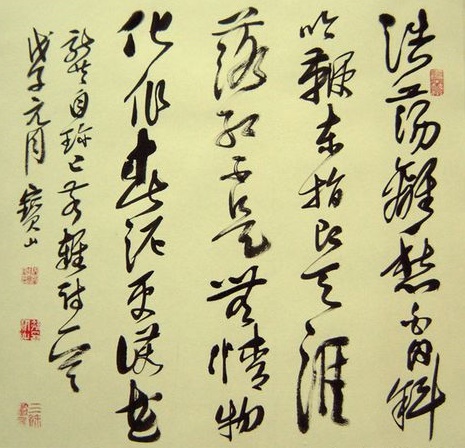 浩蕩離愁白日斜
吟鞭東指即天涯
落紅不是無情物
化作春泥更護花
龔自珍己亥雜詩一首
戊子元月 寶山